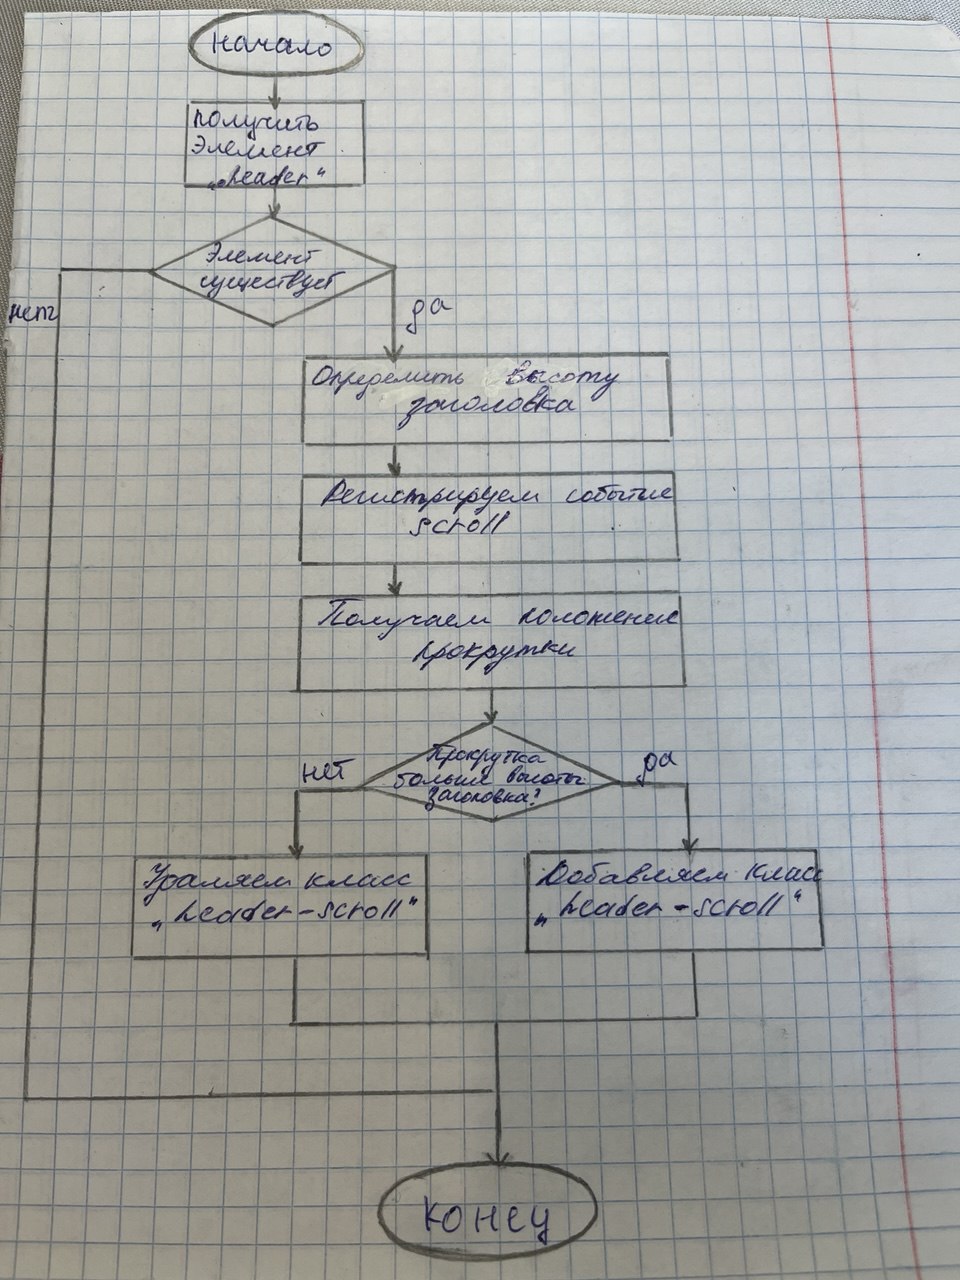 Начало
получить
Элемент
„header“
Элемент
существует
нет
да
Определить высоту
заголовка
Регистрируем событие
scroll
Получаем положение
прокрутки
нет
Прокрутка
больше высоты
заголовка?
да
Удаляем класс
„header-scroll“
Добавляем класс
„header-scroll“
Конец